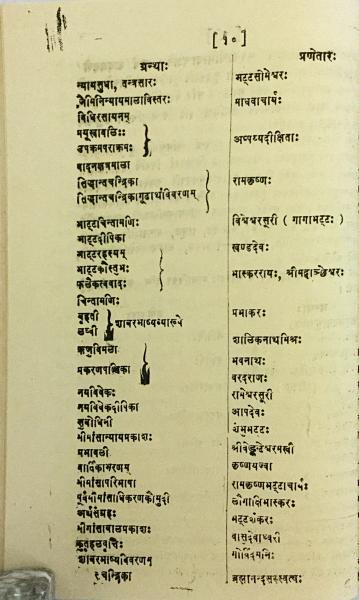 [ १० ]
ग्रन्थाः
प्रणेतारः
न्यायसुधा, तन्त्रसारः
भट्टसोमेश्वरः
जैमिनिन्यायमाळाविस्तरः
माधवाचार्यः
विधिरसायनम्
मयूखावळिः
उपक्रमपराक्रमः
अप्पय्यदीक्षिताः
वादनक्षत्रमाळा
सिद्धान्तचन्द्रिका
रामकृष्णः
सिद्धान्तचन्द्रिकागूढार्थविवरणम्
भाट्टचिन्तामणिः
विश्वेश्वरसूरी ( गागाभट्टः )
भाट्टदीपिका
खण्डदेवः
भाट्टरहस्यम्
भाट्टकौस्तुभः
भास्कररायः,
फळैकत्ववादः
चिन्तामणिः
प्रभाकरः
बृहती
लघ्वी
शाबरभाष्यव्याख्ये
शाळिकनाथमिश्रः
ऋजुविमळा
भवनाथः
प्रकरणपञ्चिका
वरदराजः
नयविवेकः
रामेश्वरसूरी
नयविवेकदीपिका
आपदेवः
सुबोधिनी
शंभुभट्टः
मीमांसान्यायप्रकाशः
श्रीवेङ्कटेश्वरमखी
प्रभावळी
कृष्णयज्वा
वार्तिकाभरणम्
रामकृष्णभट्टाचार्यः
मीमांसापरिभाषा
लौगाक्षिभास्करः
पूर्वमीमांसाधिकरणकौमुदी
भट्टशंकरः
अर्थसंग्रहः
वासुदेवाध्वरी
मीमांसाबाळप्रकाशः
गोविंदमुनिः
कुतूहळवृत्तिः
शाबरभाष्यविवरणम्
चन्द्रिका